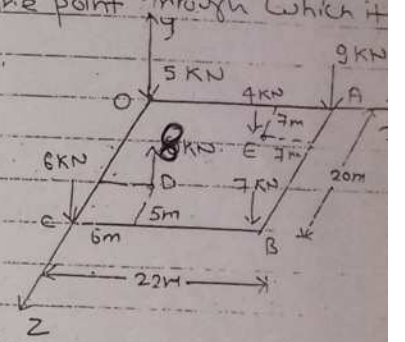 the point through which it
y
9KN
5 KN
O
4KN
A
7m
E
7m
8KN
6KN
D
7KN
20m
C
5m
6m
B
22m
Z